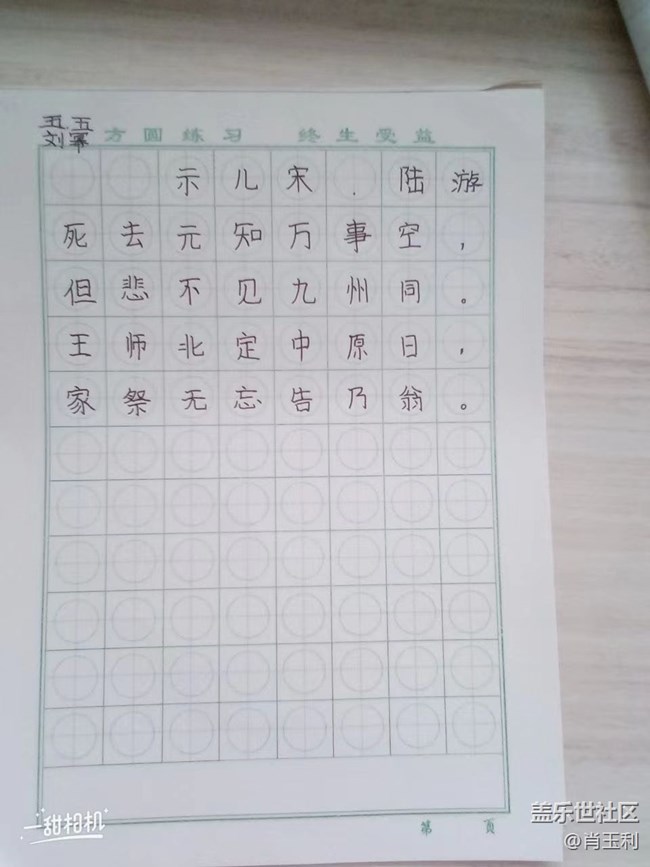 五五
刘幂
方圆练习 终生受益
示儿宋.陆游
死去元知万事空,
但悲不见九州同。
王师北定中原日,
家祭无忘告乃翁。
第 页
一甜相机
盖乐世社区
@肖玉利